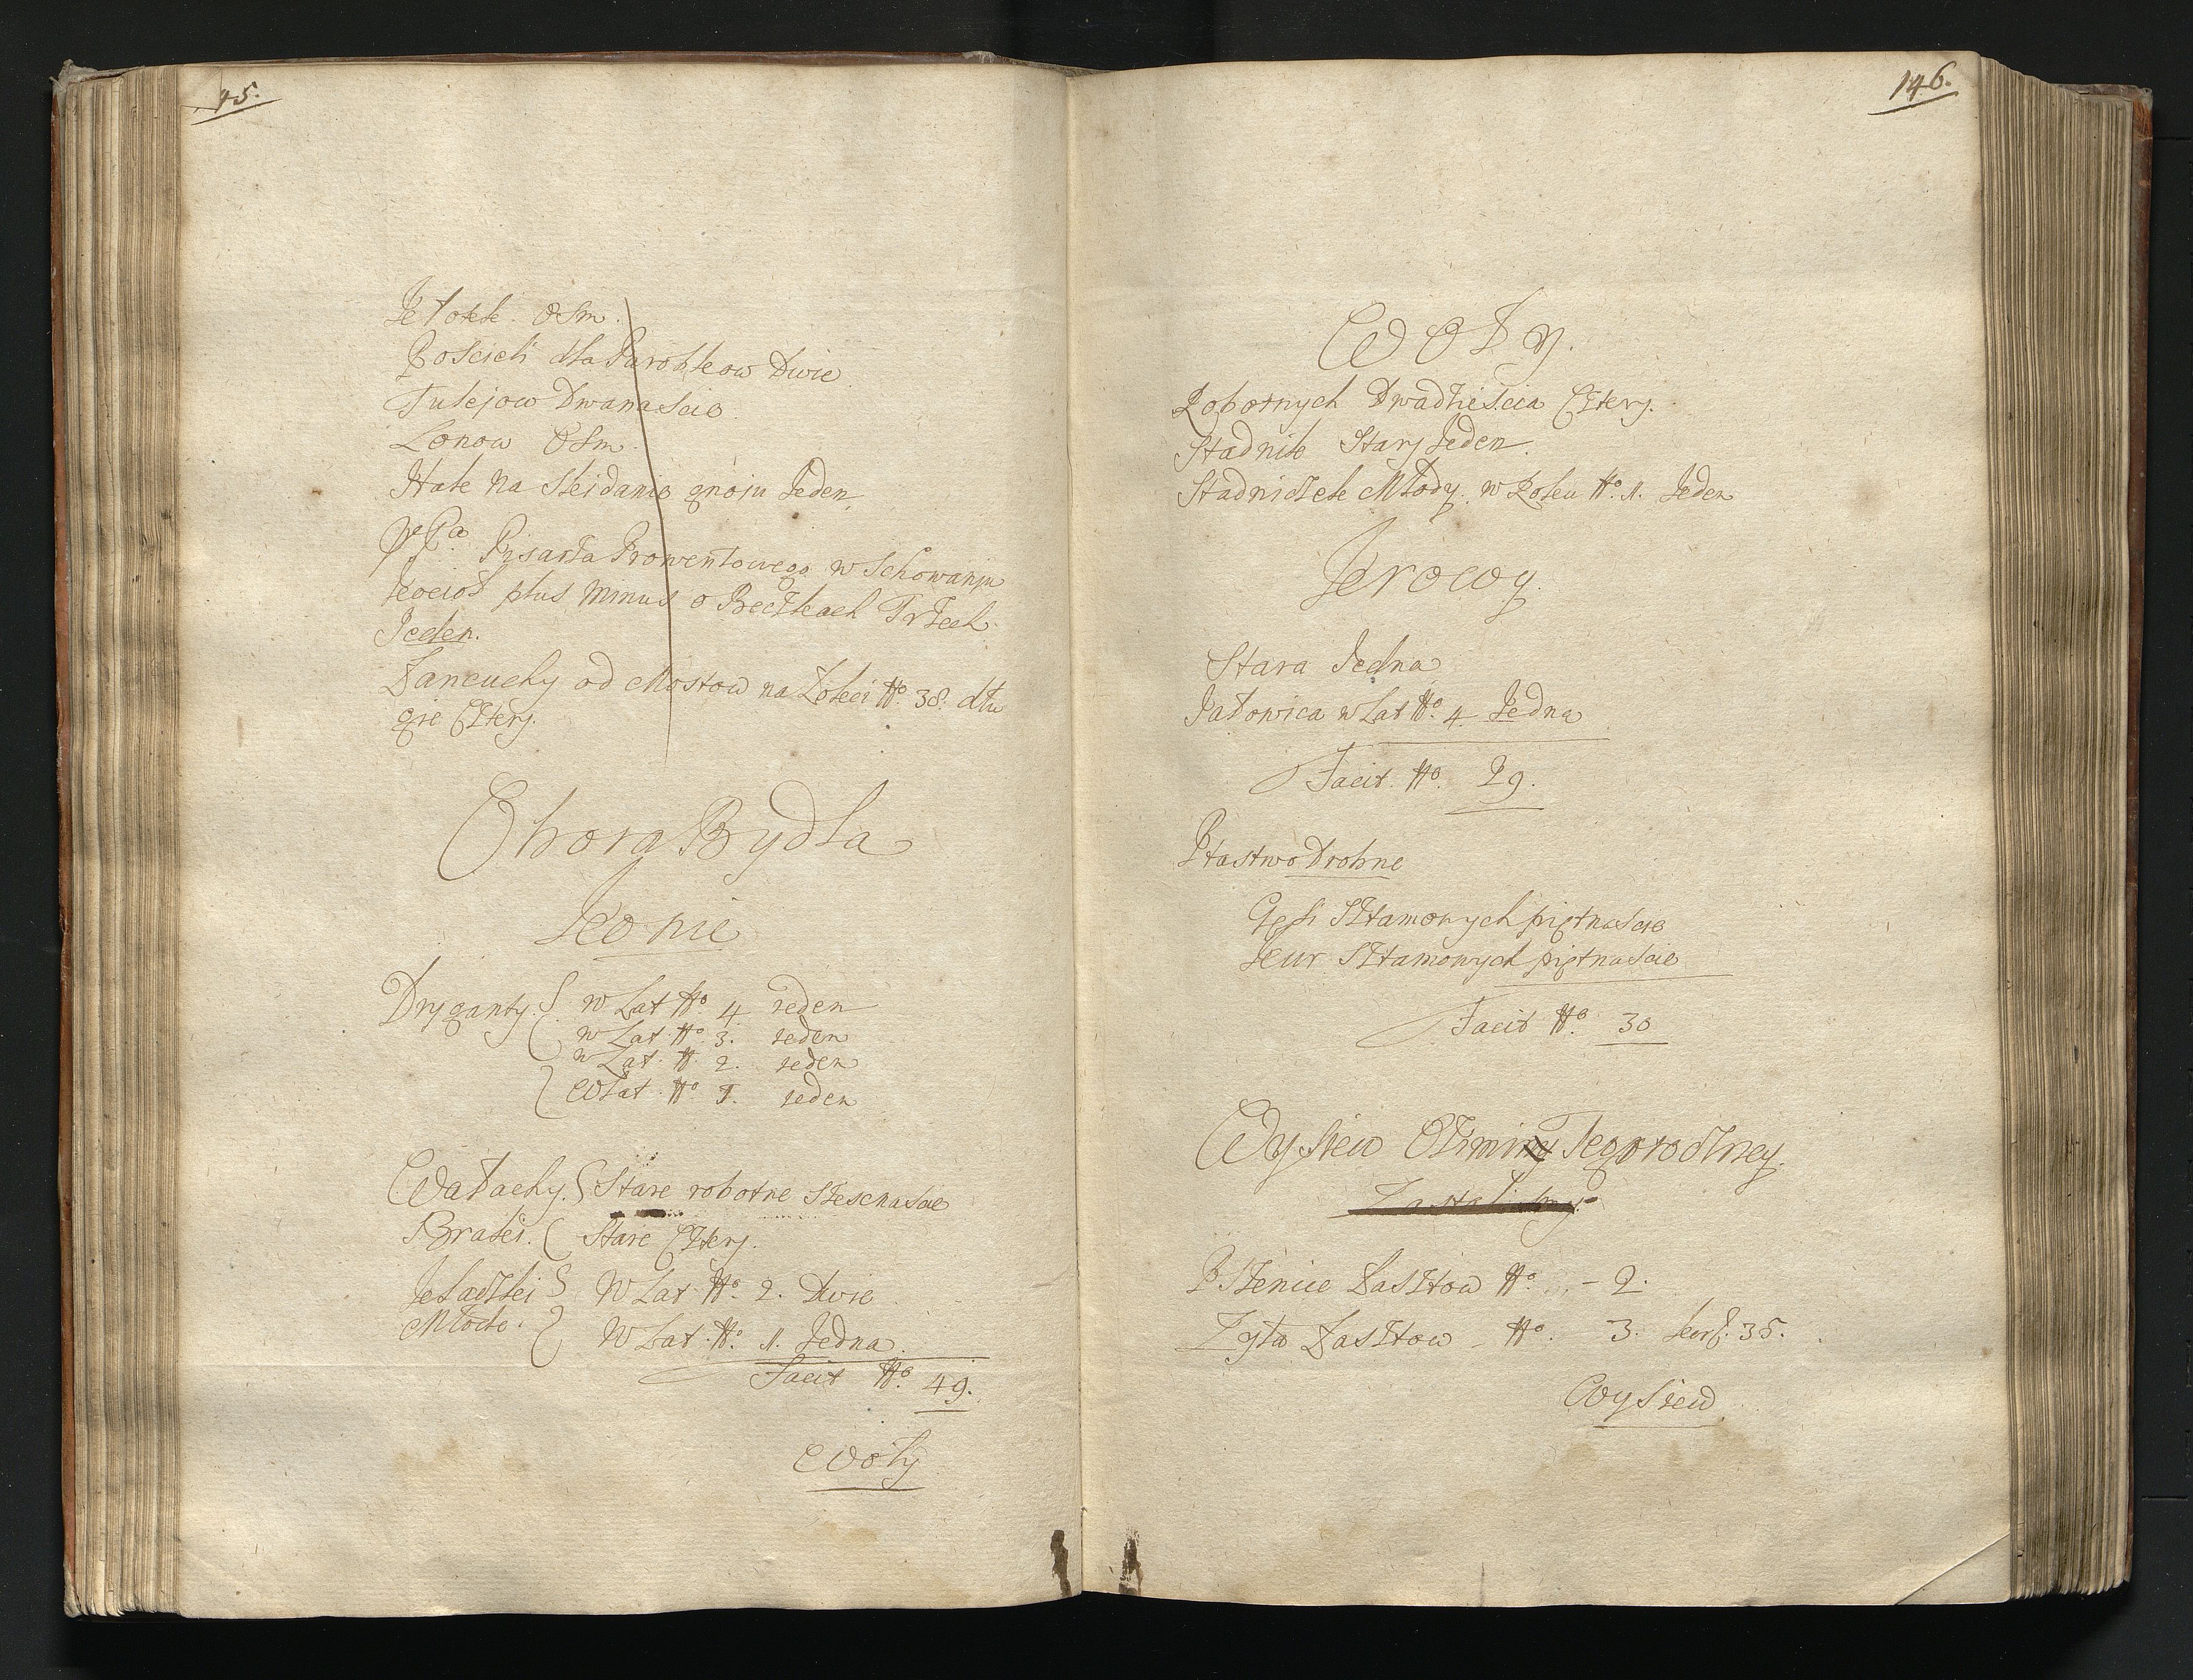 145.
Kłotek Osm.
Poscieli dla Parobkow Dwie
Tulejow Dwanascie
Lonow Osm.
Hak na Skidanie gnoju Jeden,
Pisarza Prowentowego w Schowaniu
kocioł plus minus o Beczkach Trzech
Jeden.
Łancuchy od Mostow na Łokci No. 38. dłu
gie Cztery.
Obora Bydła
Konie
Dryganty. { w Lat No. 4 jeden
w Lat No. 3. jeden
w Lat. No. 2. jeden
w Lat. No. 1. jeden
Wałachy. { Stare robotne szesnascie
Braki. { Stare Cztery.
Klaczki { W Lat No. 2. Dwie
Młode. { W Lat. No. 1. Jedna.
Facit No. 49.
Woły
146.
Woły.
Robotnych Dwadziescia Cztery.
Stadnik Stary Jeden.
Stadniczek Młody w Roku No. 1. Jeden
Krowy.
Stara Jedna
Jałowica w Lat No. 4 Jedna
Facit. No. 29.
Ptastwo Drobne
Gęsi Sztamowych piętnascie
Kur Sztamowych piętnascie
Facit No. 30
Wysiew Oziminy Tegoroczney.
Pszenice Łasztow No. - 2.
Zyta Łasztow - No. 3. korc. 35.
Wysiew